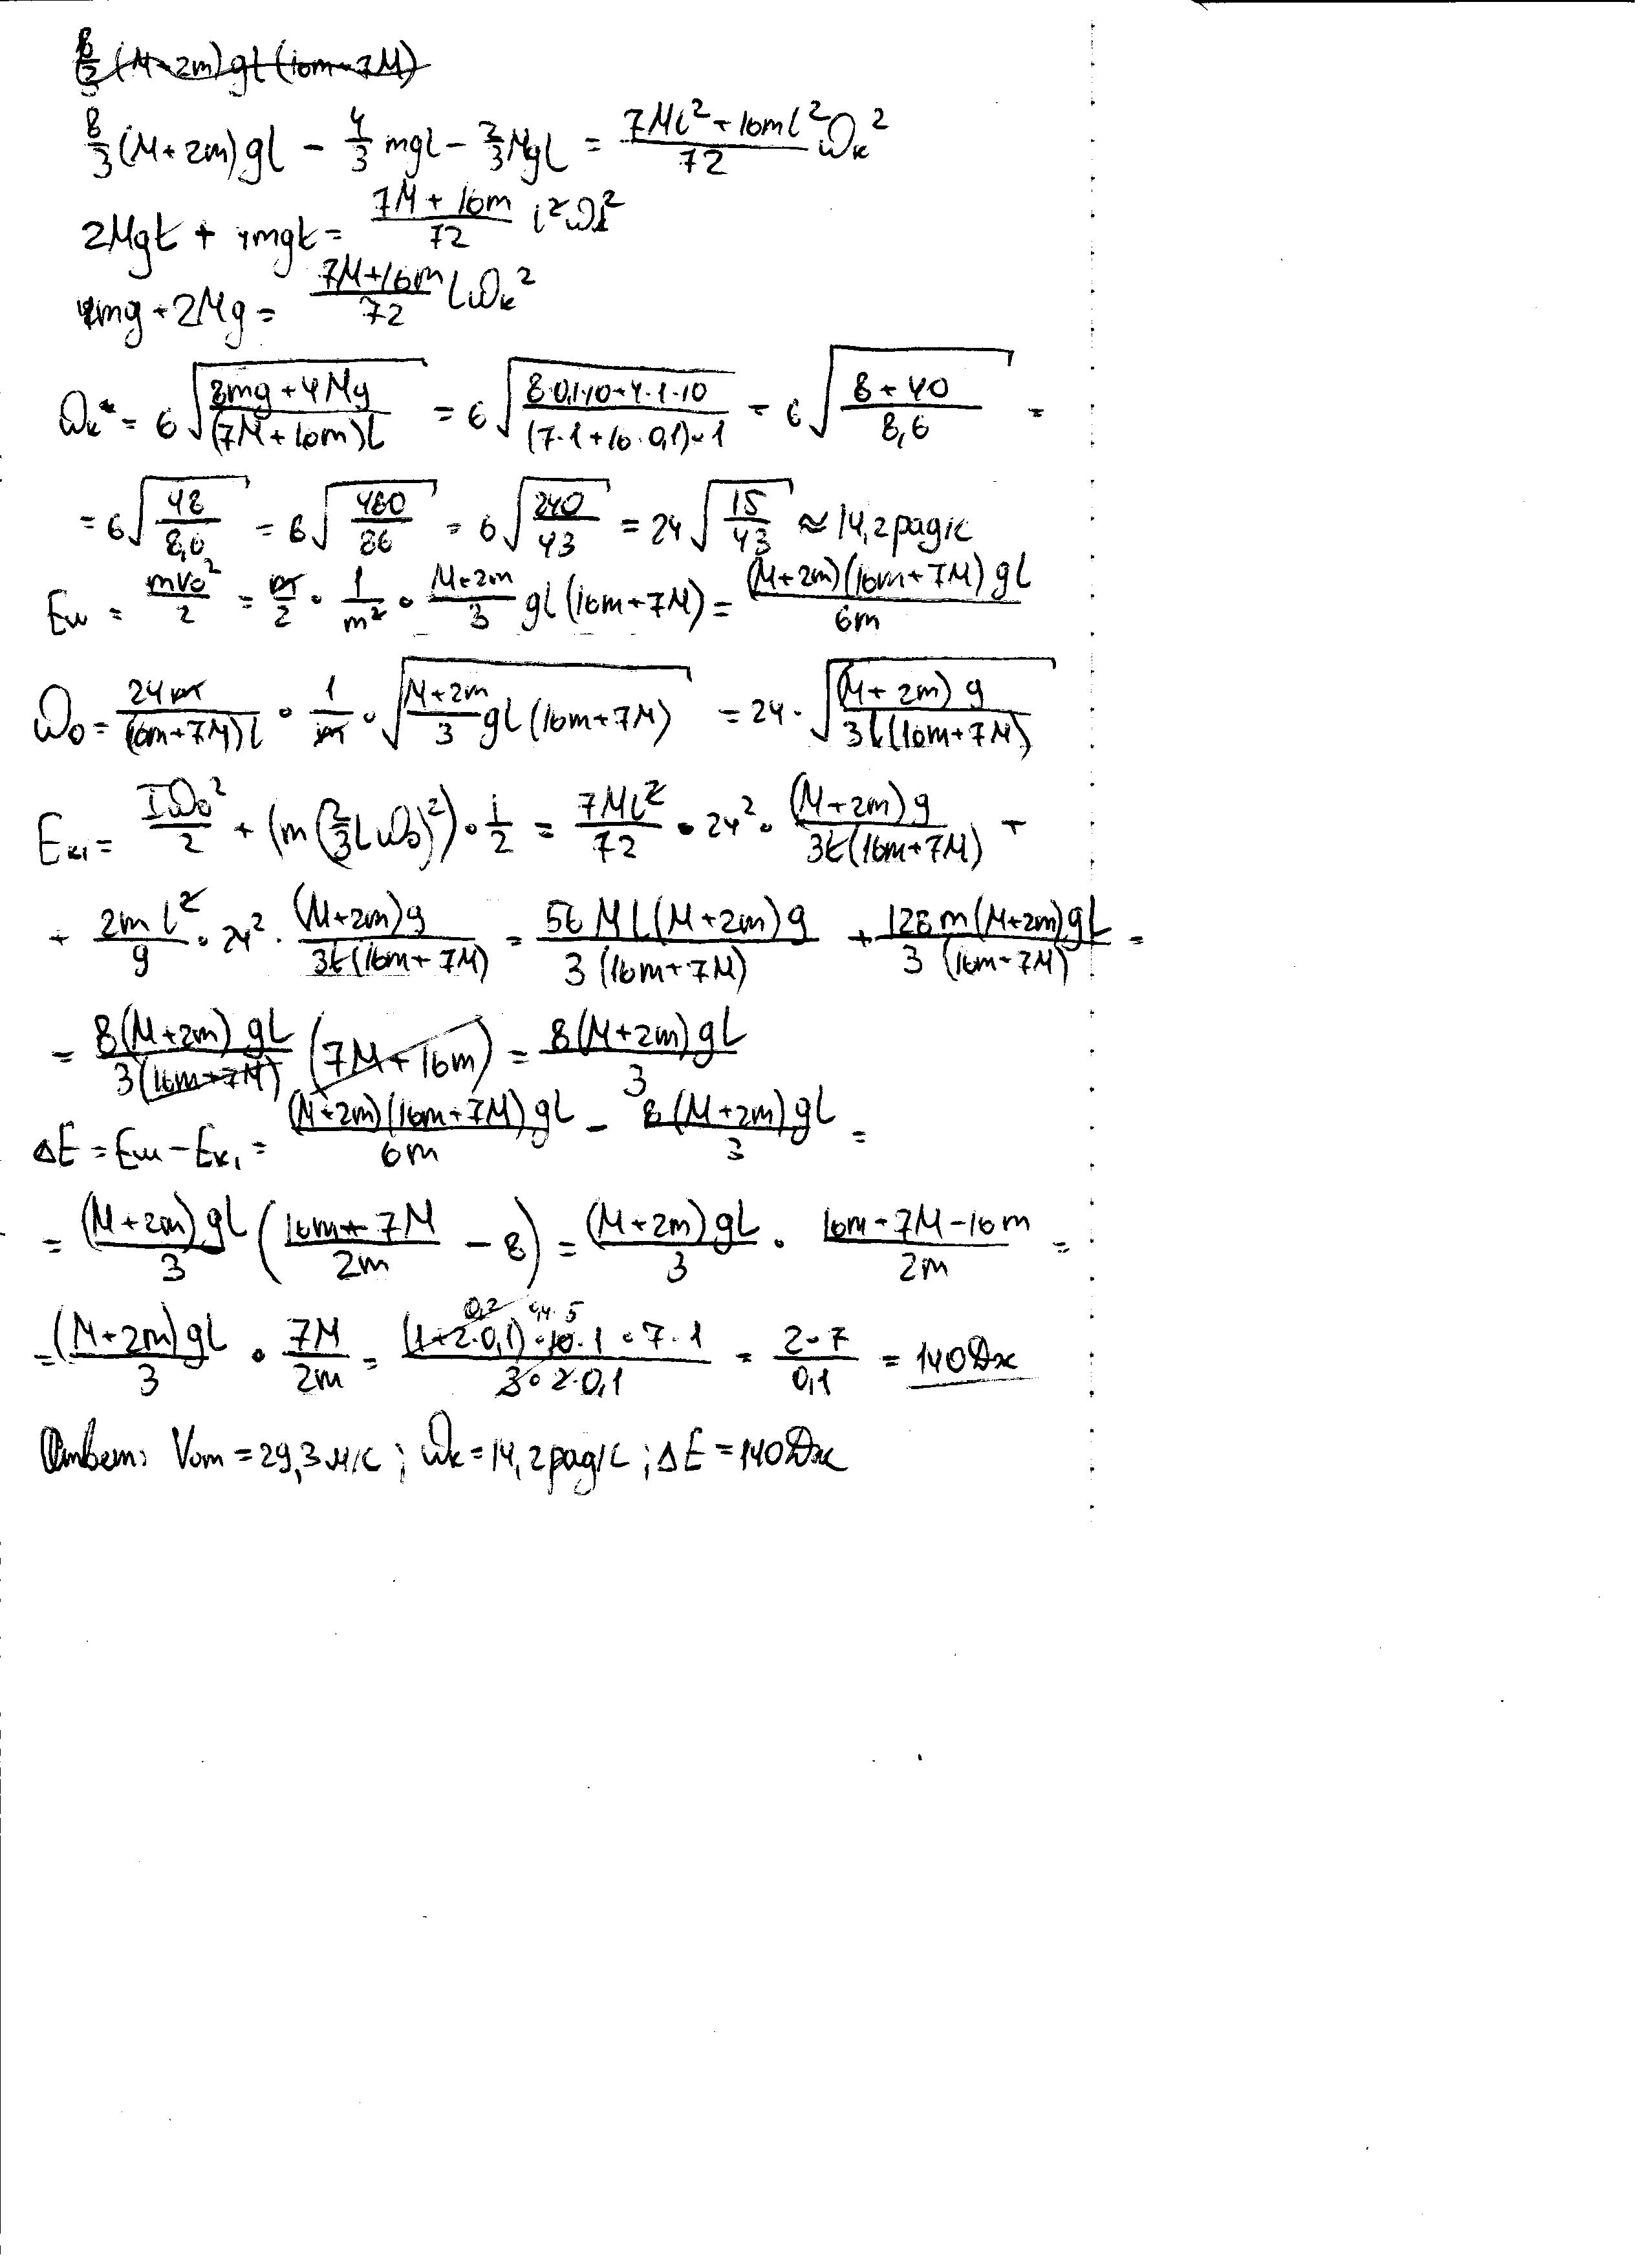 8/3 (M+2m)gl(16m+7M)
8/3 (M+2m)gl − 4/3 mgl − 2/3 Mgl = (7Ml²+16ml²)/72 ω_к²
2Mgl + 4mgl = (7M+16m)/72 l²ω_к²
4mg+2Mg = (7M+16m)/72 lω_к²
ω_к = 6√((8mg+4Mg)/((7M+16m)l)) = 6√((8·0,1·10+4·1·10)/((7·1+16·0,1)·1)) = 6√((8+40)/8,6) =
= 6√(48/8,6) = 6√(480/86) = 6√(240/43) = 24√(15/43) ≈ 14,2рад/с
Eш = mv₀²/2 = m/2 · 1/m² · (M+2m)/3 gl(16m+7M) = (M+2m)(16m+7M)gl/6m
ω₀ = 24m/((16m+7M)l) · 1/m · √((M+2m)/3 gl(16m+7M)) = 24·√((M+2m)g/(3l(16m+7M)))
Eк₁ = Iω₀²/2 + (m(2/3 lω₀)²)·1/2 = 7Ml²/72 · 24² · (M+2m)g/(3l(16m+7M)) +
+ 2ml²/9 · 24² · (M+2m)g/(3l(16m+7M)) = 56Ml(M+2m)g/(3(16m+7M)) + 128m(M+2m)gl/(3(16m+7M)) =
= 8(M+2m)gl/(3(16m+7M)) (7M+16m) = 8(M+2m)gl/3
ΔE = Eш−Eк₁ = (M+2m)(16m+7M)gl/6m − 8(M+2m)gl/3 =
= (M+2m)gl/3 ((16m+7M)/2m − 8) = (M+2m)gl/3 · (16m+7M−16m)/2m =
= (M+2m)gl/3 · 7M/2m = (1+2·0,1)·10·1·7·1/(3·2·0,1) = 2·7/0,1 = 140Дж
Ответ: Vom = 29,3 м/с; ω_к = 14,2рад/с; ΔE = 140Дж